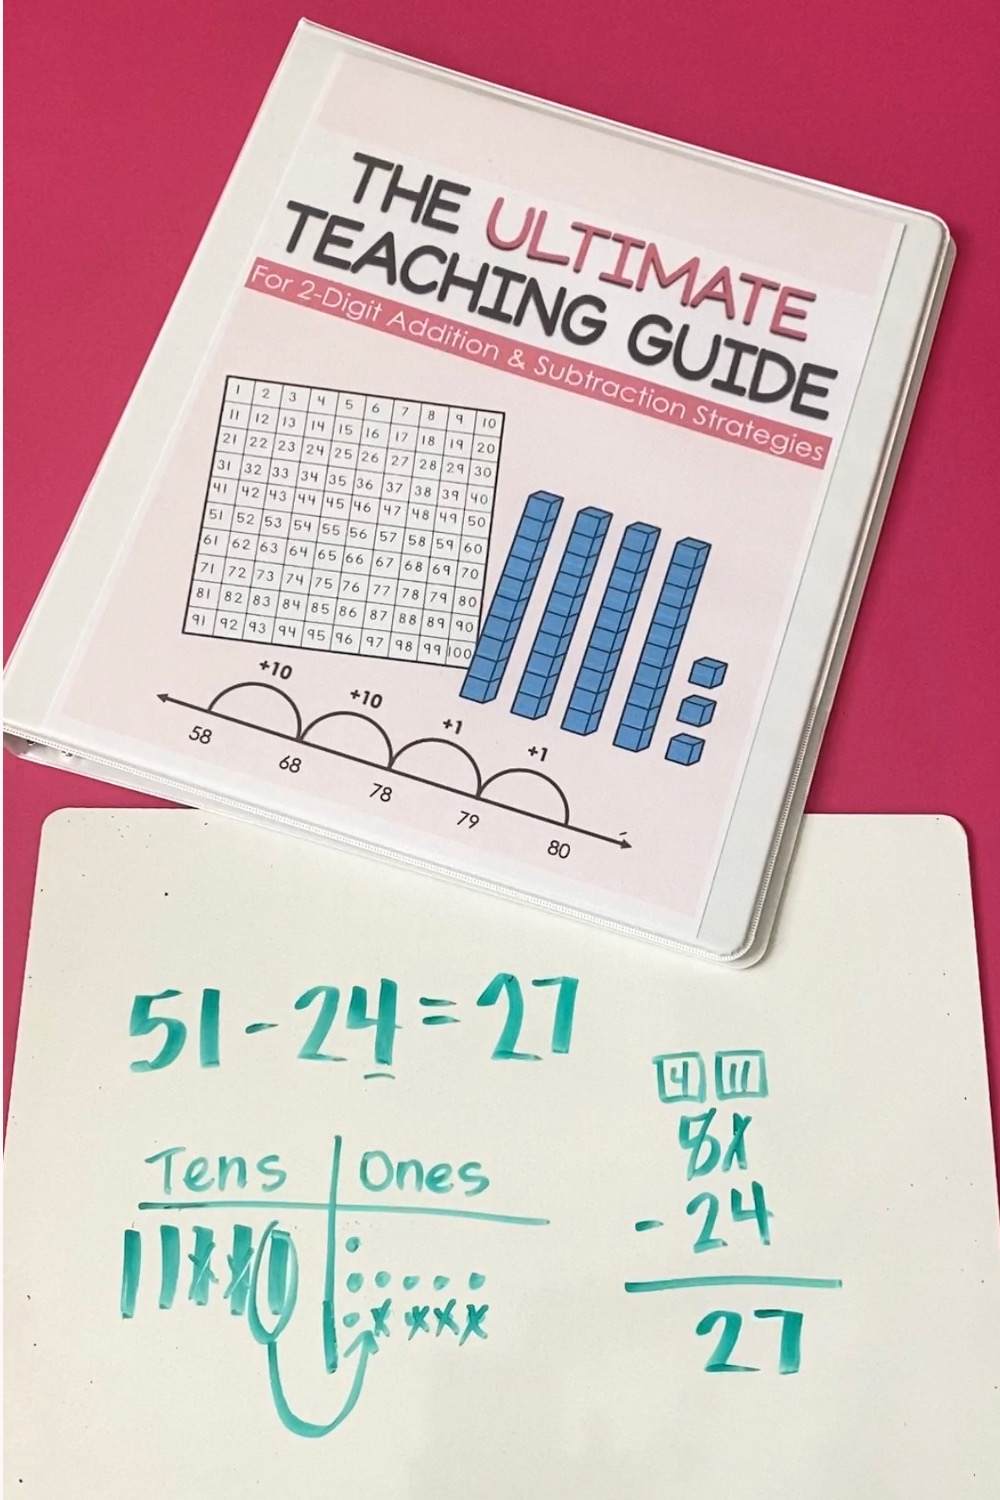 THE ULTIMATE
TEACHING GUIDE
For 2-Digit Addition & Subtraction Strategies
1 2 3 4 5 6 7 8 9 10
11 12 13 14 15 16 17 18 19 20
21 22 23 24 25 26 27 28 29 30
31 32 33 34 35 36 37 38 39 40
41 42 43 44 45 46 47 48 49 50
51 52 53 54 55 56 57 58 59 60
61 62 63 64 65 66 67 68 69 70
71 72 73 74 75 76 77 78 79 80
81 82 83 84 85 86 87 88 89 90
91 92 93 94 95 96 97 98 99 100
+10 +10 +1 +1
58 68 78 79 80
51 - 24 = 27
Tens Ones
4 11
51
- 24
27